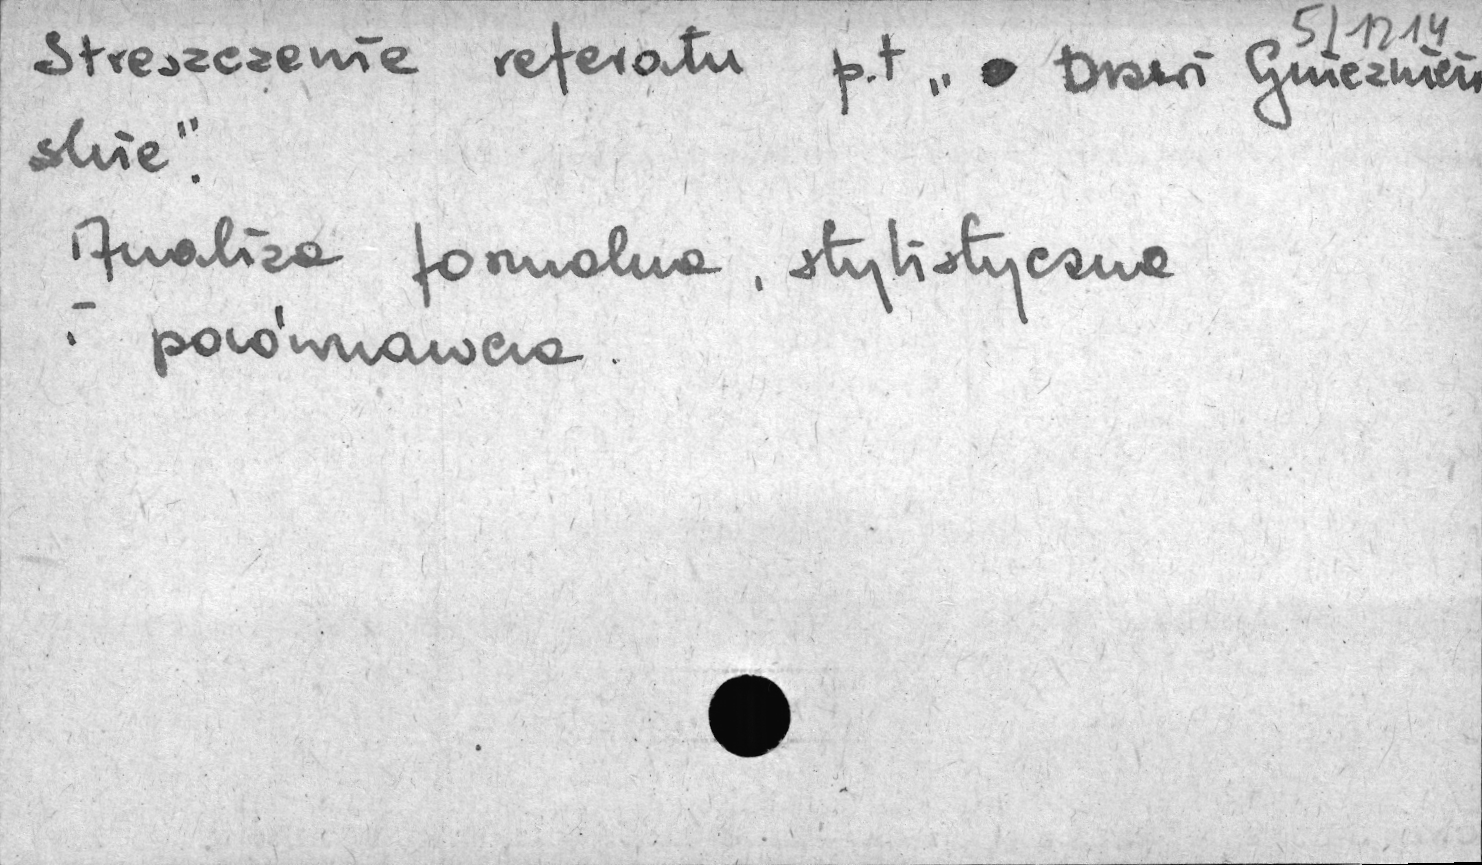 5/1214
Streszczenie referatu p.t „ Drzwi Gnieznień
skie".
Analiza formalna, stylistyczna
i porównawcza.